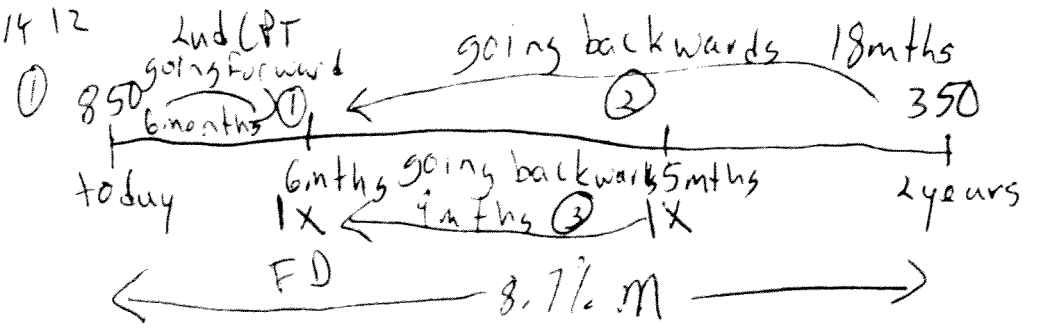 14 12
2nd CPT
going backwards 18mths
① 850 going forward ① ② 350
6 months
today 6mths going backwards 15mths 2 years
1X 9 mths ③ 1X
FD
8.7% m